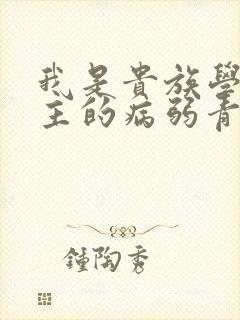 我是貴族學
主的病弱青
鍾陶秀